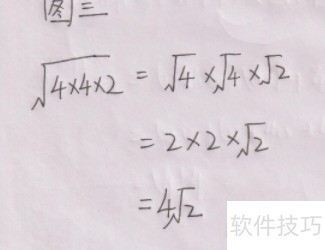 图三
√4×4×2 = √4×√4×√2
= 2×2×√2
= 4√2
软件技巧